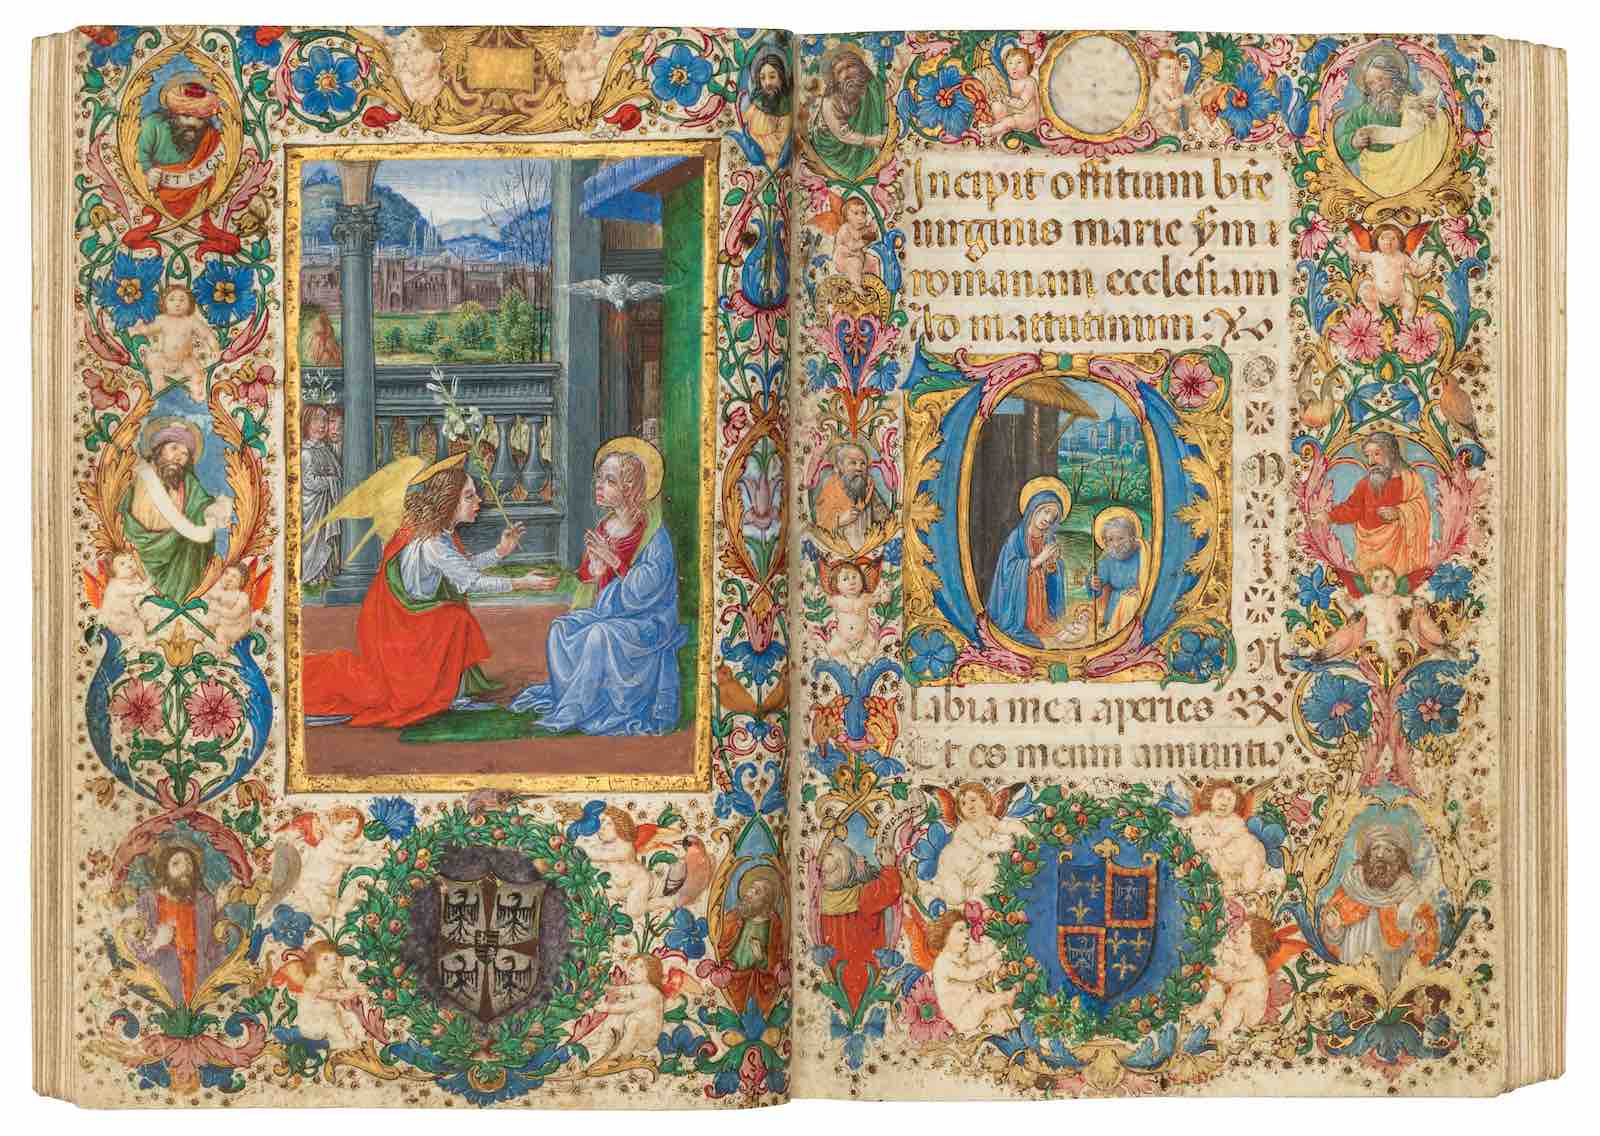 ET REGN
Incipit offitium bt̄e
uirginis marie s̄m
romanam ecclesiam
Ad mattutinum
D
O
M
I
N
labia mea aperies
Et os meum